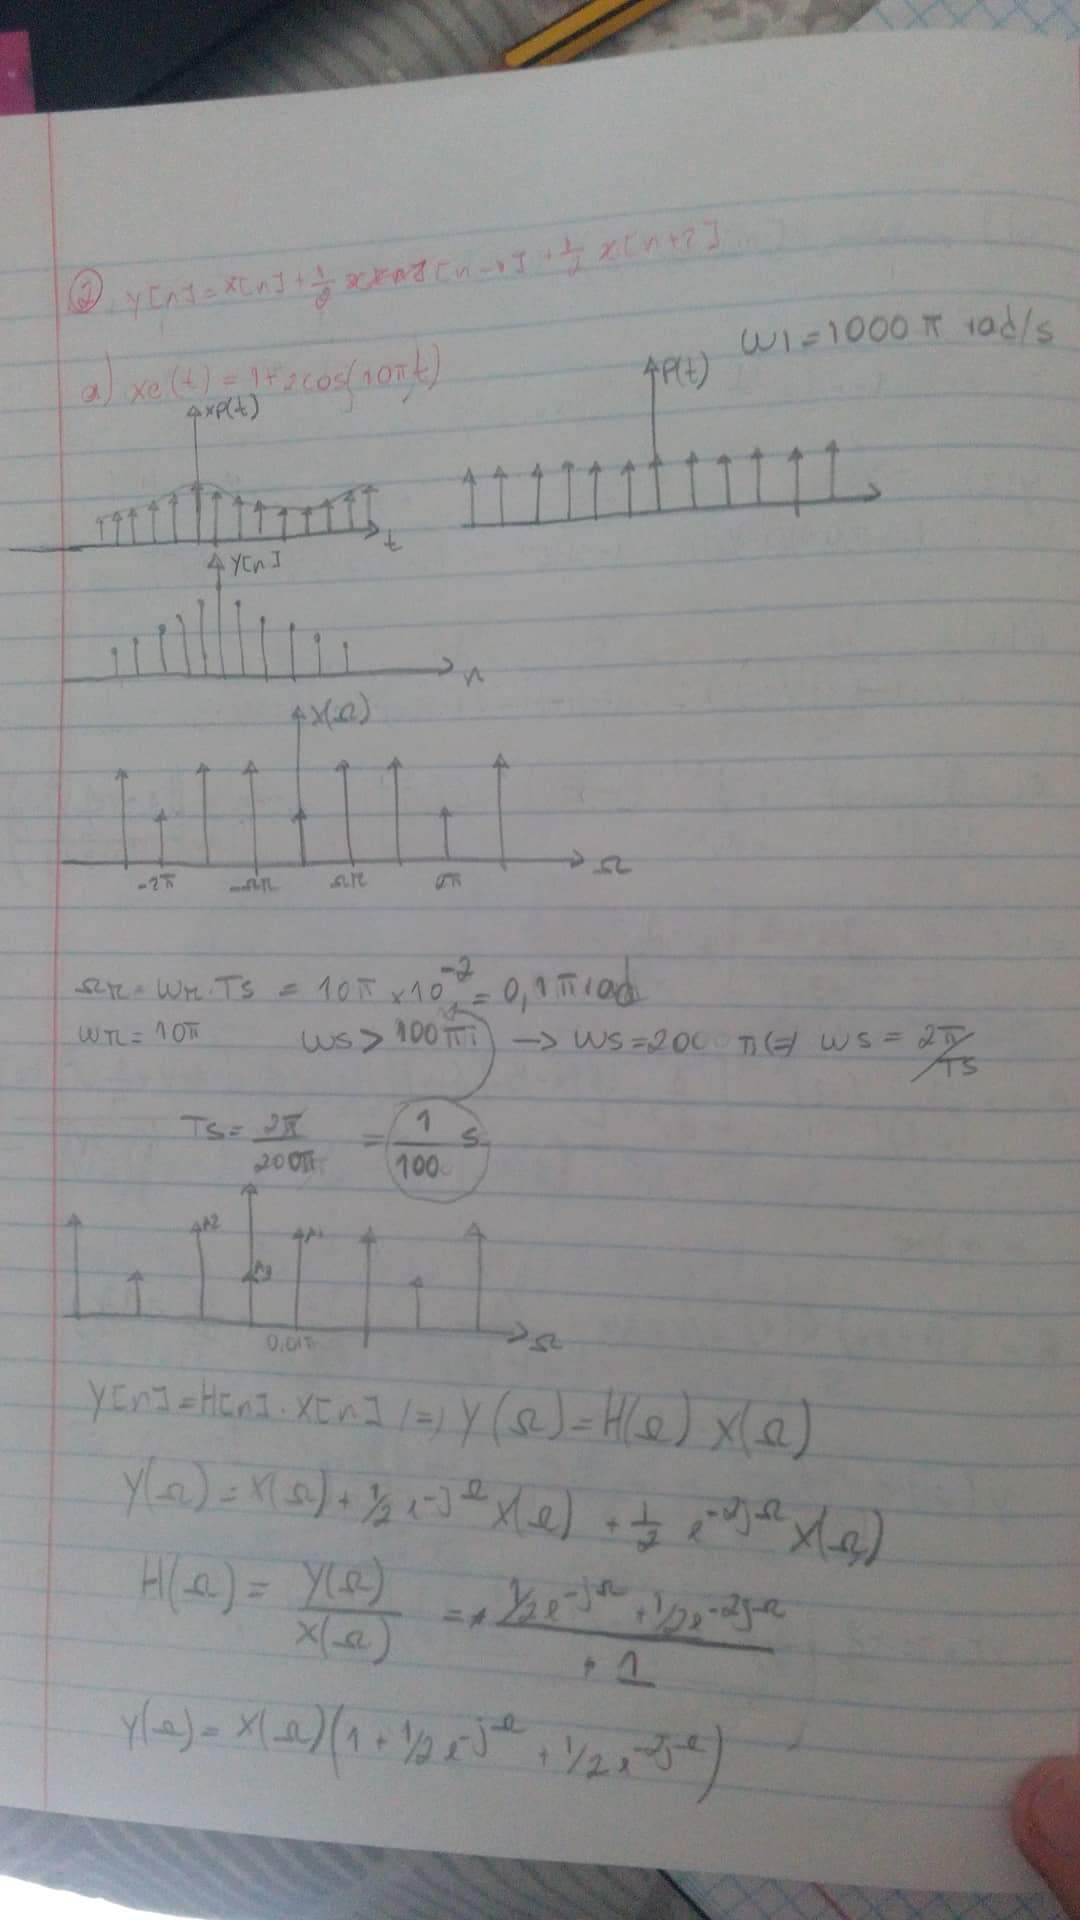 ② y[n]=x[n]+1/2 x[n-1]+1/2 x[n+2]
W1=1000π rad/s
a) xe(t)=1+2cos(10πt)
xp(t)
P(t)
t
Y[n]
n
X(Ω)
-2π -Ωr Ωr 2π Ω
Ωr=Wr.Ts = 10π x10^-2 = 0,1π rad
Wr=10π Ws>100π → Ws=200π ⇔ Ws=2π/Ts
Ts=2π/200π = 1/100 s
A2 A1
A3
0,01π Ω
Y[n]=H[n].X[n] ⇔ Y(Ω)=H(Ω) X(Ω)
Y(Ω)=X(Ω)+1/2 e^-jΩ X(Ω) + 1/2 e^-2jΩ X(Ω)
H(Ω)= Y(Ω)/X(Ω) = 1/2e^-jΩ+1/2e^-2jΩ / +1
Y(Ω)=X(Ω)(1+1/2e^-jΩ+1/2e^-2jΩ)